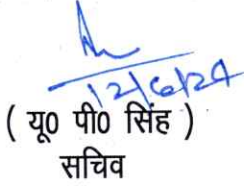 12/6/24
( यू0 पी0 सिंह )
सचिव